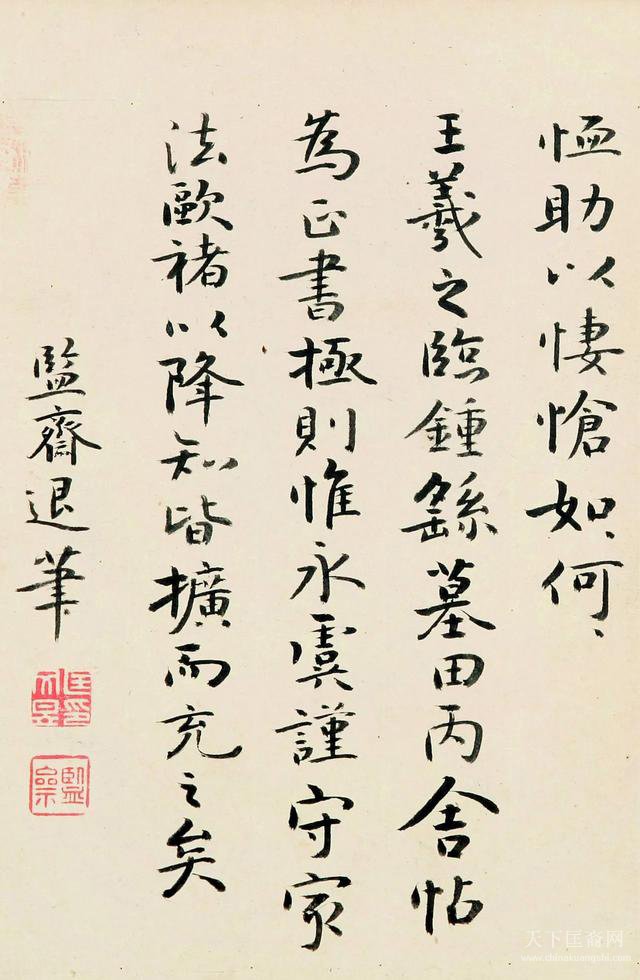 恤助以悽愴如、何、
王羲之臨鍾繇墓田丙舍帖
為正書極則惟永虞謹守家
法歐褚以降知皆擴而充之矣
監齋退筆
天下匡裔网
www.chinakuangshi.com